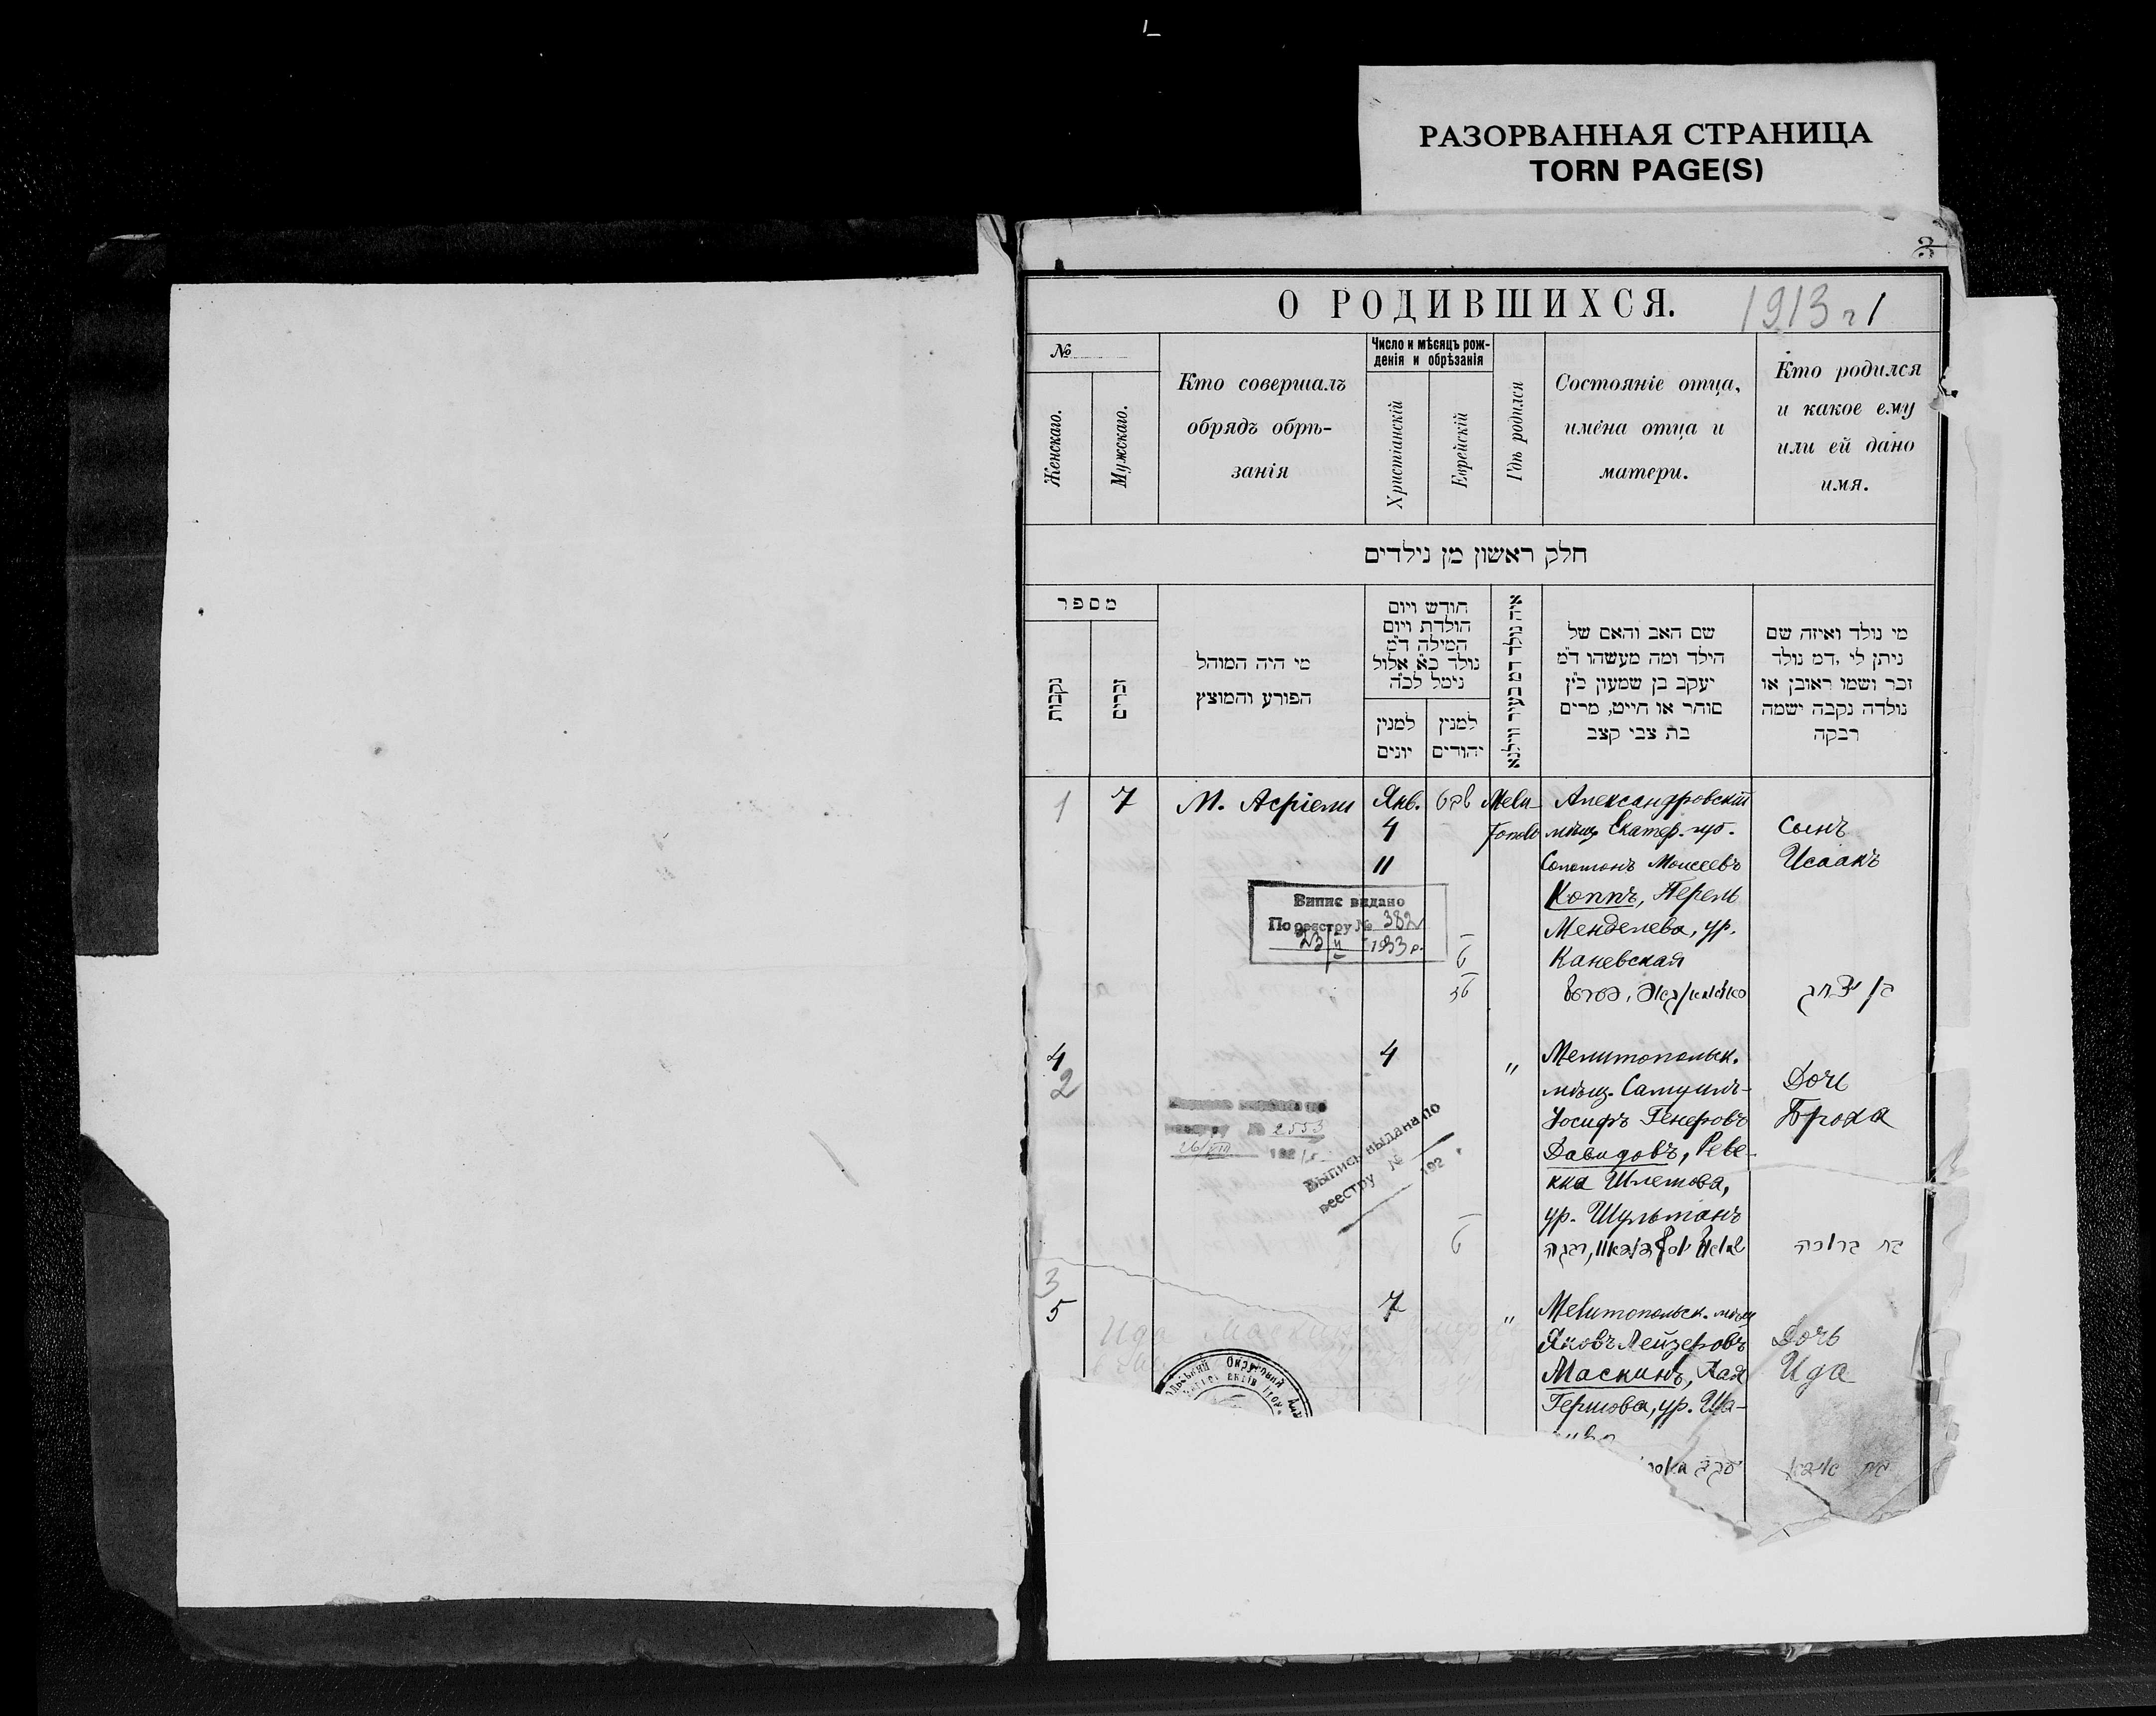 РАЗОРВАННАЯ СТРАНИЦА
TORN PAGE(S)
О РОДИВШИХСЯ.
1913 г
1
№
Женскаго.
Мужскаго.
Кто совершалъ
обрядъ обрѣ-
занія
Число и мѣсяцъ рож-
денія и обрѣзанія
Христіанскій
Еврейскій
Гдѣ родился
Состояніе отца,
имёна отца и
матери.
Кто родился
и какое ему
или ей дано
имя.
חלק ראשון מן נילדים
מספר
נקבות
זכרים
מי היה המוהל
הפורע והמוצץ
חודש ויום
הולדת ויום
המילה ד״מ
נולד כ״א אלול
נימל לכ״ה
למנין
יונים
למנין
יהודים
איה נולד דמ בעיר ווילנא
שם האב והאם של
הילד ומה מעשהו ד״מ
יעקב בן שמעון כ״ץ
סוחר או חייט, מרים
בת צבי קצב
מי נולד ואיזה שם
ניתן לי ,דמ נולד
זכר ושמו ראובן או
נולדה נקבה ישמה
רבקה
1
7
М. Асріели
Янв.
4
11
שבט
Мели-
тополь
Александровскій
мѣщ. Екатер. губ.
Соломонъ Моисеевъ
Коппъ, Перель
Менделева, ур.
Каневская
Сынъ
Исаакъ
בן יצחק
Випис видано
По реєстру № 382
23/II 1933 р.
4
2
4
"
Мелитопольск.
мѣщ. Самуилъ-
Іосифъ Генеровъ
Давидовъ, Реве-
кка Шлемова,
ур. Шульманъ
Дочь
Броха
בת ברוכה
№ 2553
26/VIII 192
Выпись выдана по
реестру № 192 г.
3
5
7
"
Мелитопольск. мѣщ
Яковъ Лейзеровъ
Маскинъ, Хая
Гершова, ур. Ша-
Дочь
Ида
בת אידא
Округовий